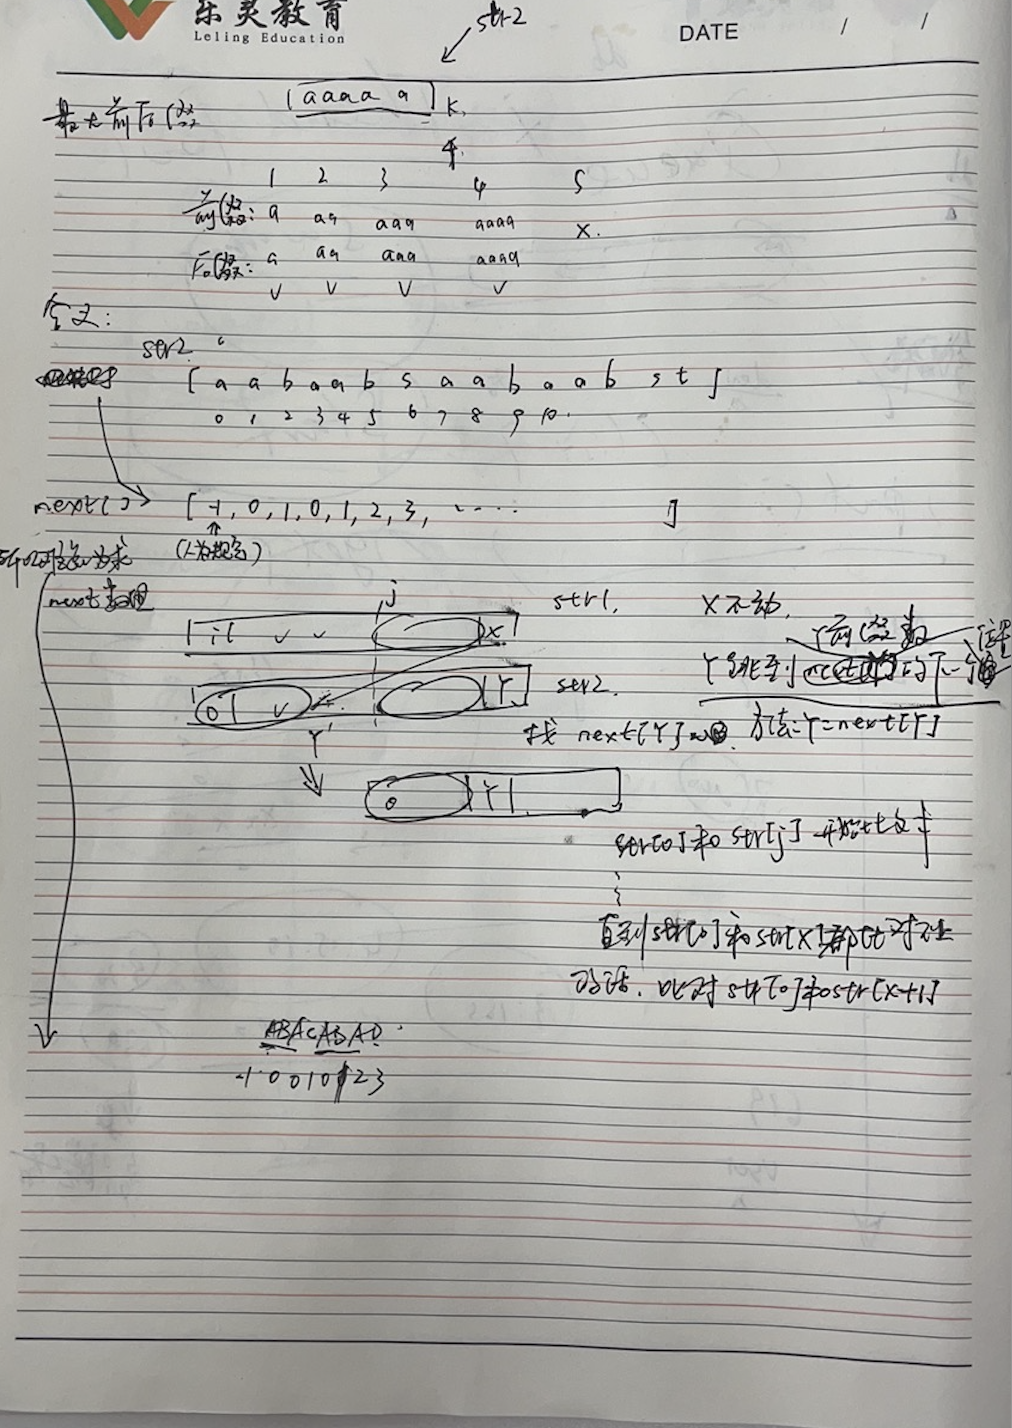 乐灵教育
Leling Education
DATE / /
str2
[aaaa a] k.
最大前后缀
1 2 3 4 5
前缀: a aa aaa aaaa X.
后缀: a aa aaa aaaa
√ √ √ √
含义:
str2
[ a a b a a b s a a b a a b s t ]
0 1 2 3 4 5 6 7 8 9 10.
next[] [ -1, 0, 1, 0, 1, 2, 3, ...... ]
(人为规定)
next数组
j
str1. X不动,
i Y前缀数
X
Y跳到 的下一个
0 Y str2.
找 next[Y] 方法: Y=next[Y]
Y'
0 Y
str[0]和 str[j] 开始比对
直到str[0]和str[X]都比对不上
的话, 比对 str[0]和str[X+1]
ABACABAD.
-1 0 0 1 0 1 2 3